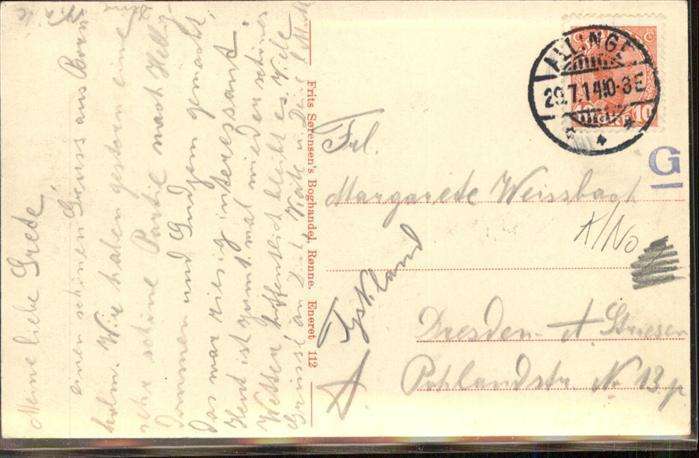 Meine liebe Grete,
einen schönen Gruss aus Born
holm. Wir haben gestern eine
sehr schöne Partie nach Hellig
dommen und Gudjem gemacht,
das war riesig interessant.
Heut ist zumal mal wieder schönes
Wetter. Hoffentlich bleibt es. Viele
Grüsse an Dich, Käte u. Deine l. Mutti
Frits Sørensen's Boghandel, Rønne. Eneret 112
ALLINGE
29.7.14 10-3E
10
G
Frl.
Margarete Weissbach
A/No
Tyskland
Dresden-A Striesen
Pohlandstr. No 13 p